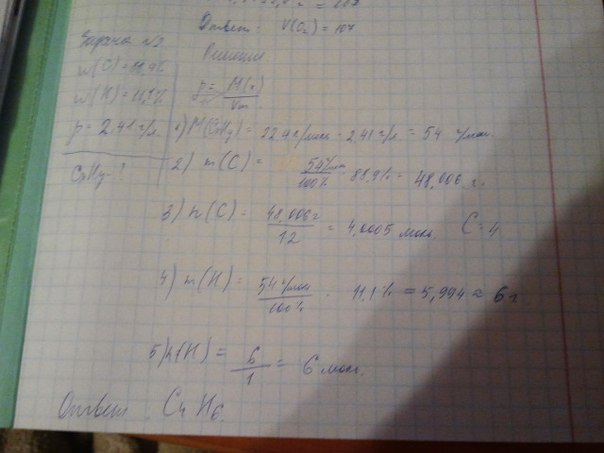 Ответ: V(O₂) = 107
Задача №3
Решение:
w(C) = 88,9%
w(H) = 11,1%
ρ = 2,41 г/л
CxHy - ?
ρ = M(x) / Vm
1) M(CxHy) = 22,4 л/моль · 2,41 г/л = 54 г/моль.
2) m(C) = 54 г/моль / 100% · 88,9% = 48,006 г.
3) n(C) = 48,006 г / 12 = 4,0005 моль. C = 4
4) m(H) = 54 г/моль / 100% · 11,1% = 5,994 ≈ 6 г.
5) n(H) = 6 / 1 = 6 моль.
Ответ: C₄H₆.